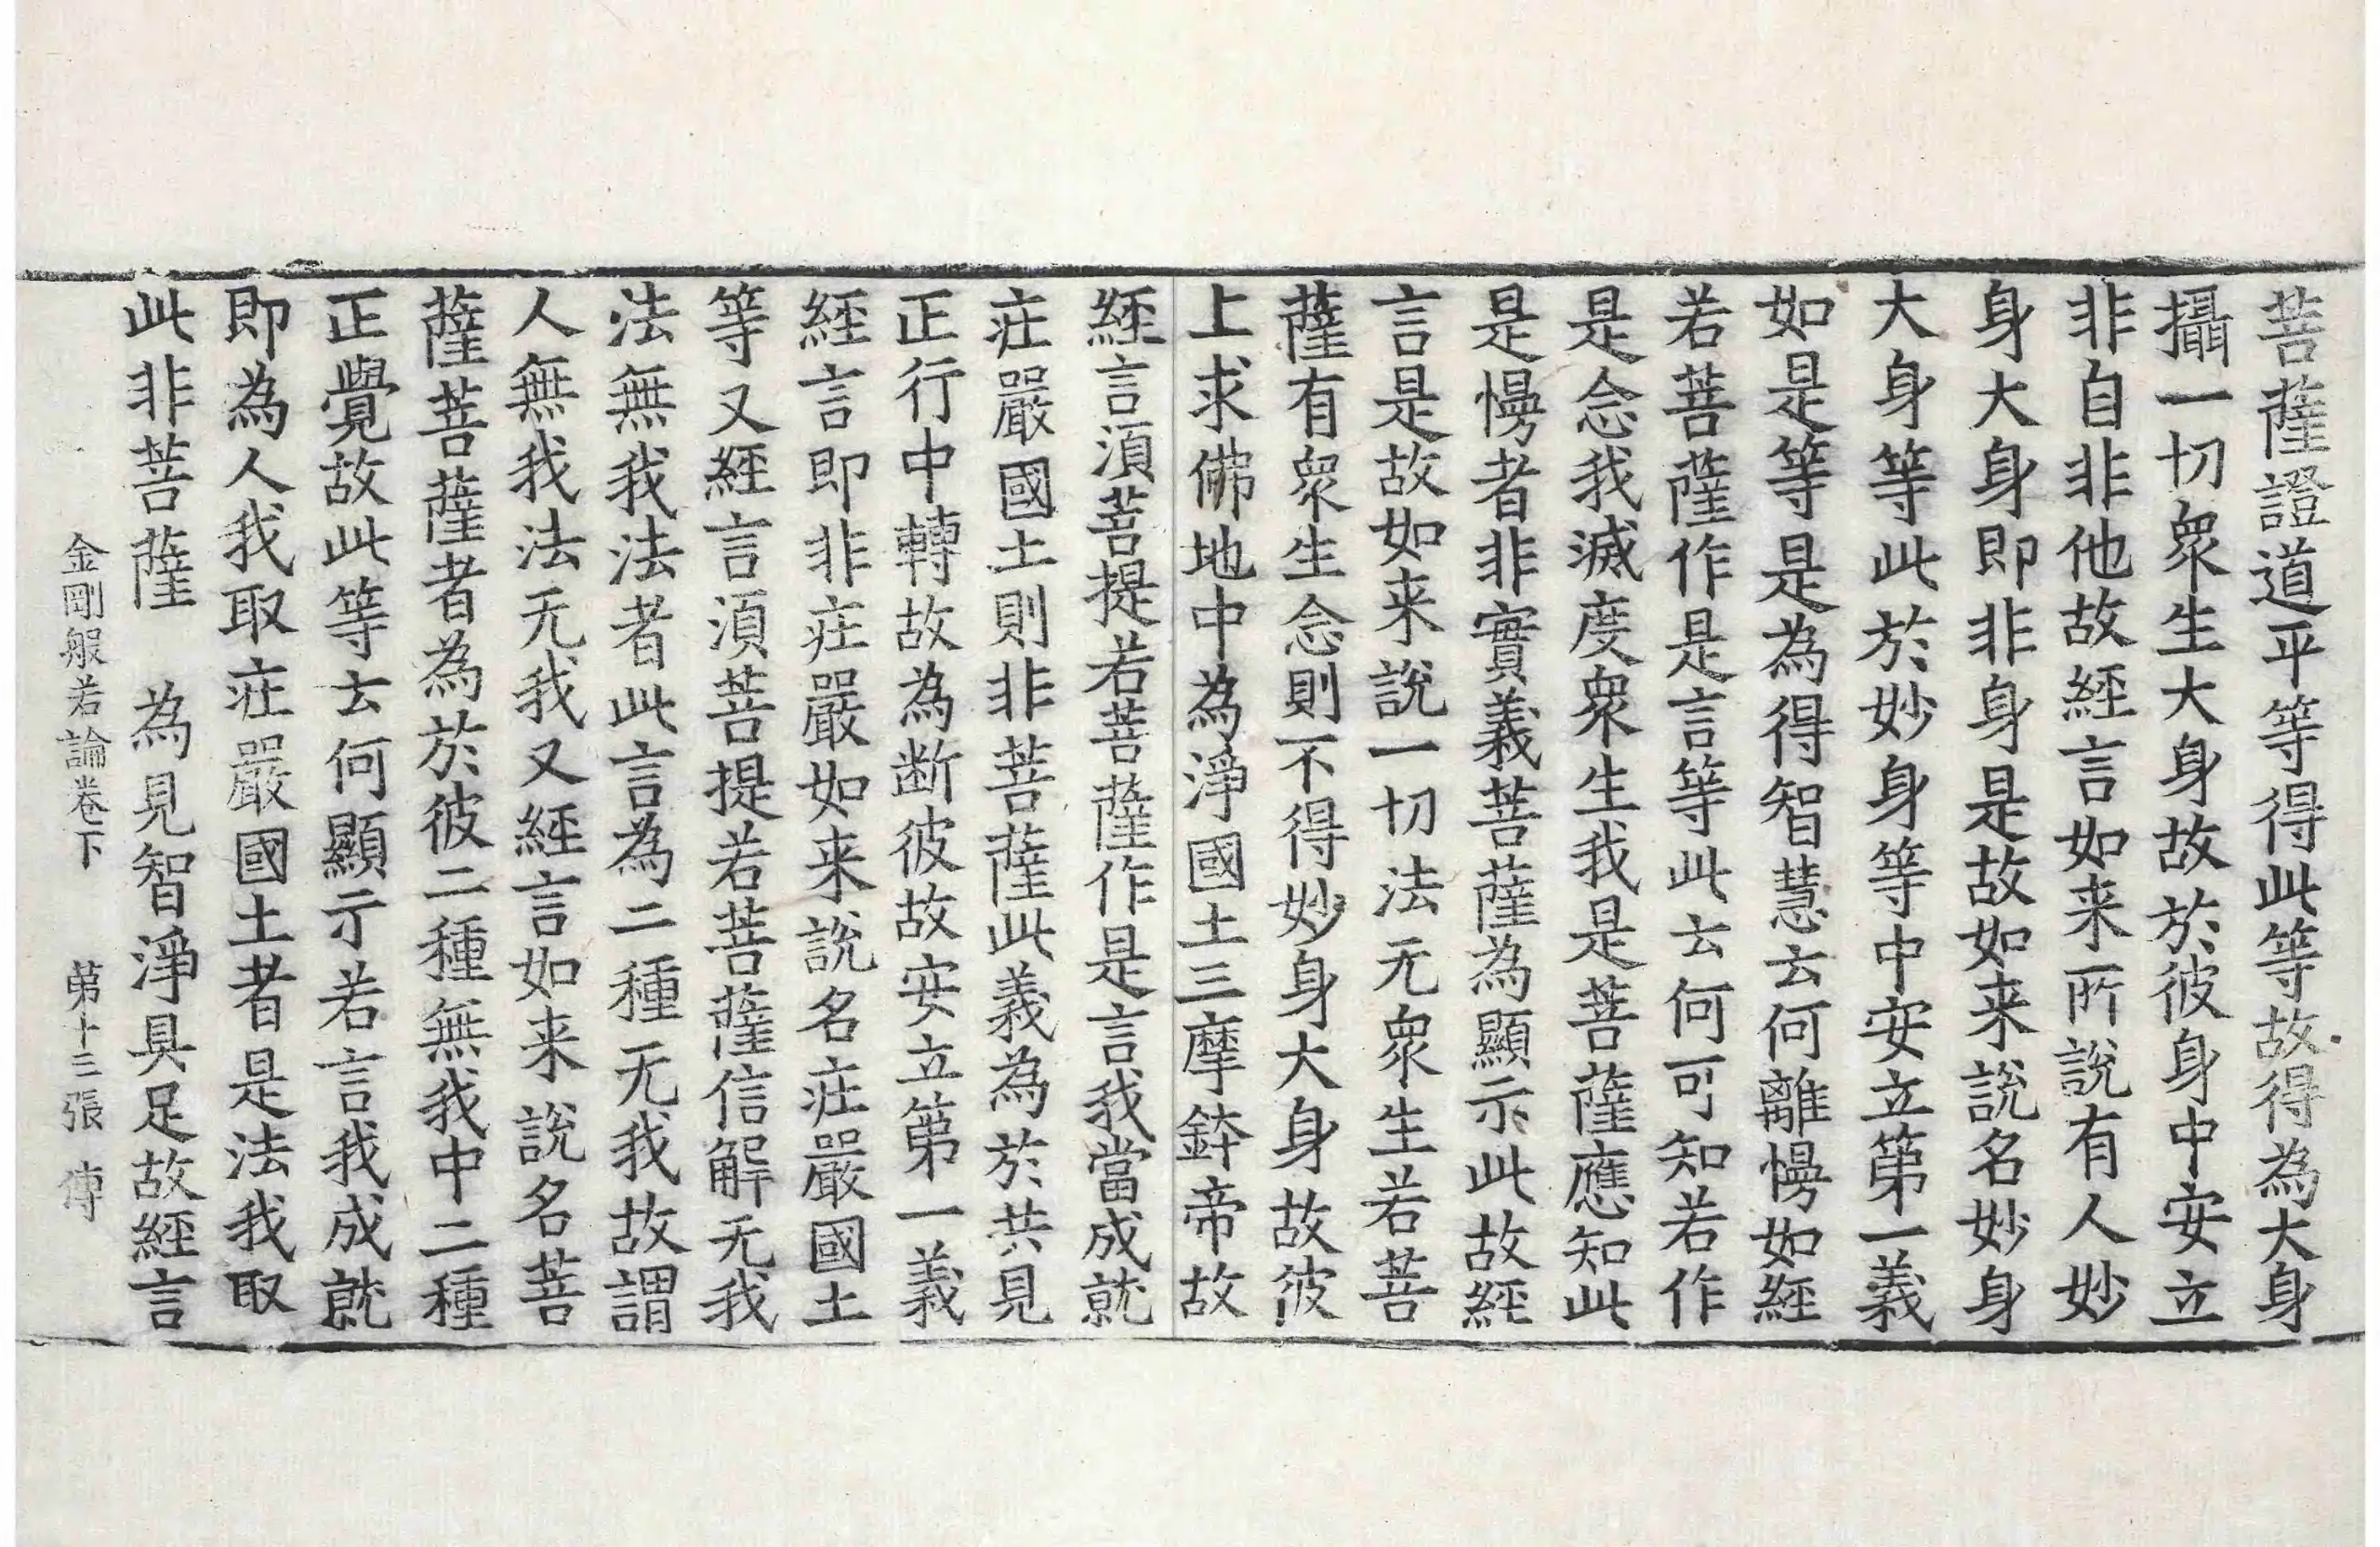 菩薩證道平等得此等故得為大身
攝一切衆生大身故於彼身中安立
非自非他故經言如来所說有人妙
身大身即非身是故如来說名妙身
大身等此於妙身等中安立第一義
如是等是為得智慧云何離慢如經
若菩薩作是言等此云何可知若作
是念我滅度衆生我是菩薩應知此
是慢者非實義菩薩為顯示此故經
言是故如来說一切法无衆生若菩
薩有衆生念則不得妙身大身故彼
上求佛地中為淨國土三摩鉢帝故
經言湏菩提若菩薩作是言我當成就
庄嚴國土則非菩薩此義為於共見
正行中轉故為断彼故安立第一義
經言即非庄嚴如来說名庄嚴國土
等又經言湏菩提若菩薩信解无我
法無我法者此言為二種无我故謂
人無我法无我又經言如来說名菩
薩菩薩者為於彼二種無我中二種
正覺故此等云何顯示若言我成就
即為人我取庄嚴國土者是法我取
此非菩薩　為見智淨具足故經言
金剛般若論卷下　第十三張　傳